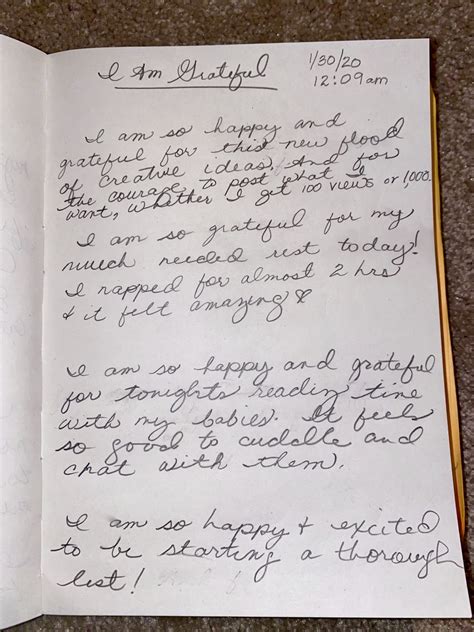 I Am Grateful
1/30/20
12:09am
I am so happy and
grateful for this new flood
of creative ideas. And for
the courage to post what I
want, whether I get 100 views or 1,000.
I am so grateful for my
much needed rest today!
I napped for almost 2 hrs
& it felt amazing
I am so happy and grateful
for tonights reading time
with my babies. It feels
so good to cuddle and
chat with them.
I am so happy & excited
to be starting a thorough
list!